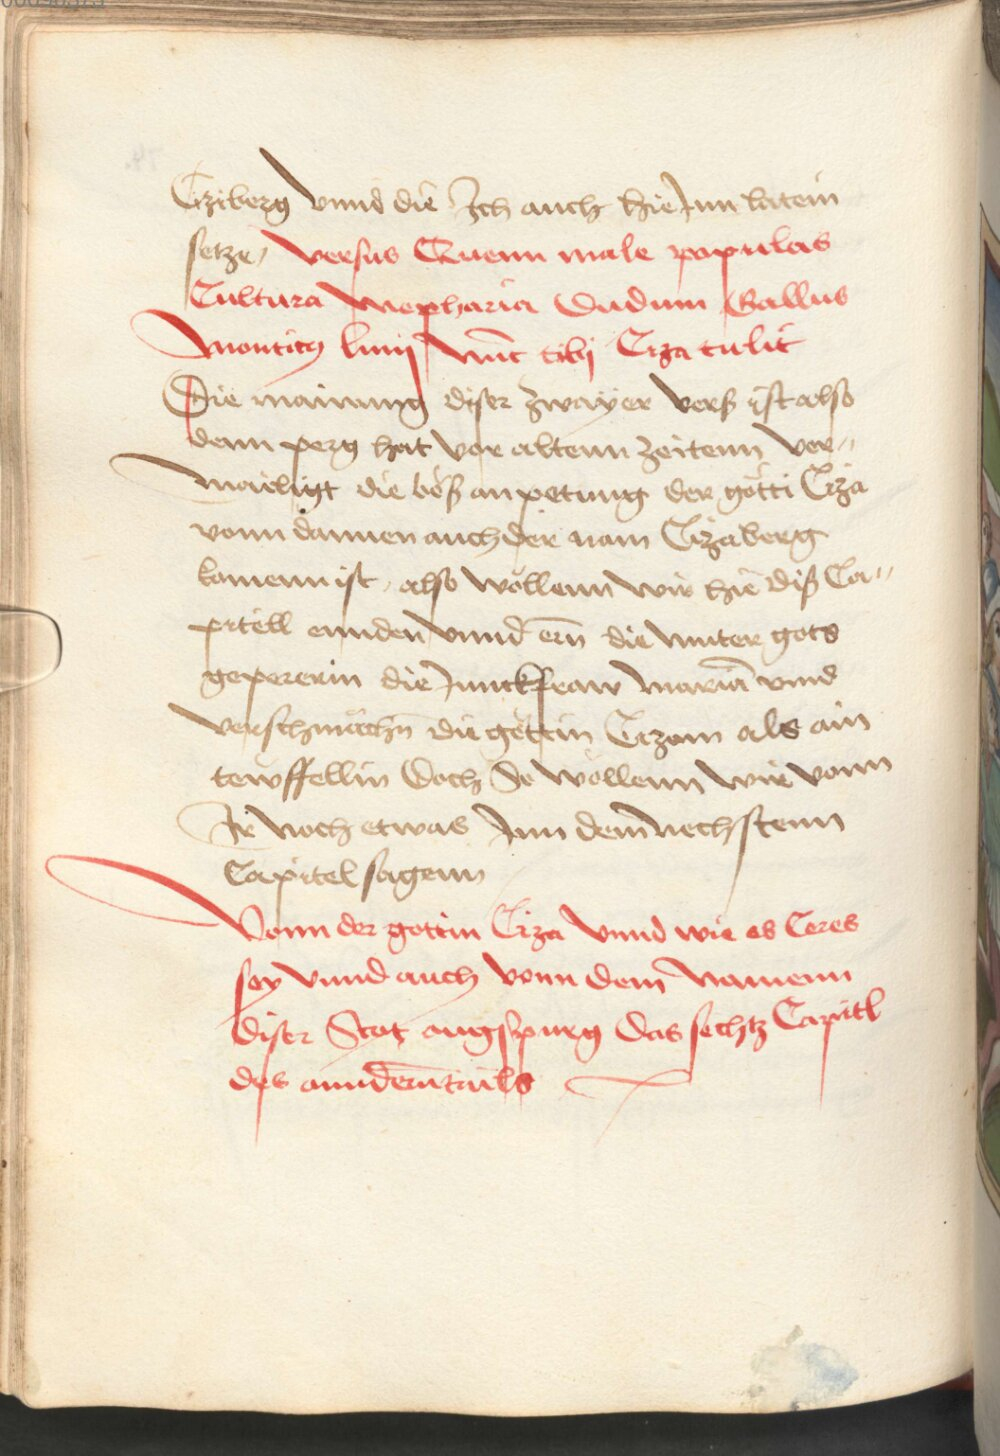 Cziberg vnnd die Ich auch hie Inn latein
setze, versus Quem male populas
Cultura nepharia Dudum Gallus
Montity nūc tibj Ciza tulit
Die mainung diser zwayer verß ist also
denn perg hat vor altenn zeitenn ver-,,
mailigt die böß anpetung der götti Ciza
vonn dannen auch der nam Cizaberg
komenn ist, also wöllenn wir hie diß Ca-,,
pitell ennden vnnd ern̄ die muter gots
gepererin die Junckfraw maria vnnd
verschmächn̄ die göttin Cizam als ain
tewffellin Doch So wöllenn wir vonn
Ir noch etwas Inn dem nechstenn
Capitel sagenn
Vonn der gottin Ciza vnnd wie es Ceres
sey vnnd auch vonn dem namenn
diser Stat augspurg Das sechtz Capitl
des annderntails